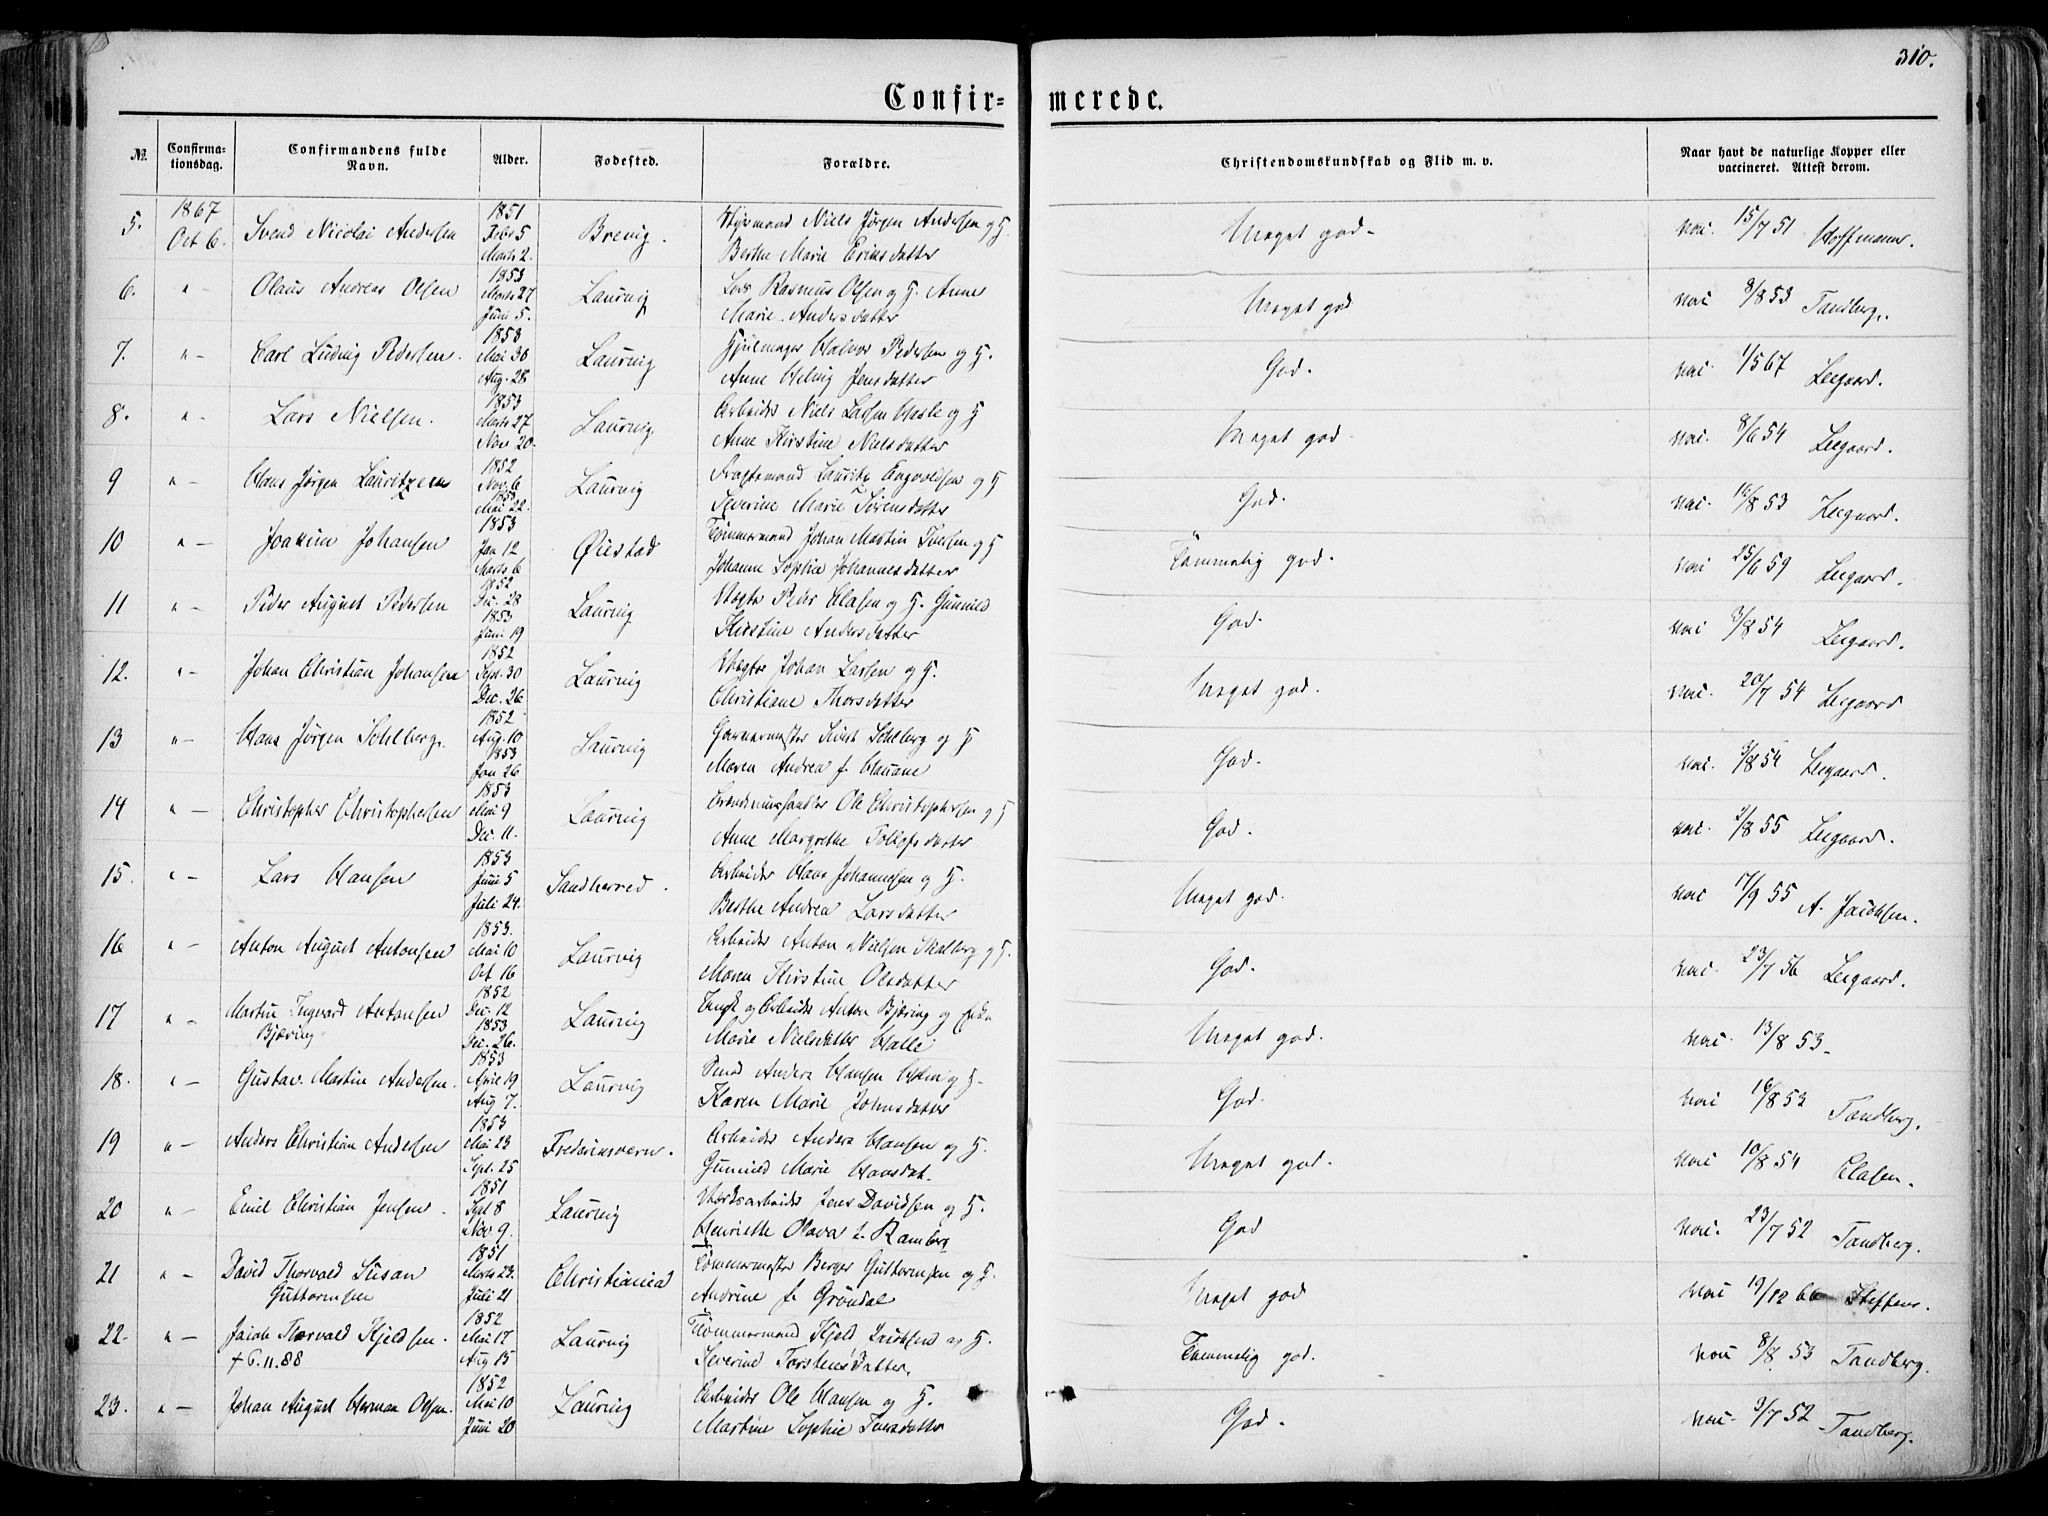 310.
Confir- merede.
№. Confirma-tionsdag. Confirmandens fulde Navn. Alder. Fødested. Forældre. Christendomskundskab og Flid m. v. Naar havt de naturlige Kopper eller vaccineret. Attest derom.
1867 1851
5. Oct 6. Svend Nicolai Andersen Febr 5 Brevig. Niels Jørgen Andersen og H. Meget god. vac. 15/7 51 Hoffmann.
Marts 2. Berthe Marie Eriksdatter
1853
6. " - Olaus Andreas Olsen Marts 27 Laurvig Lods Rasmus Olsen og H. Anne Meget god vac 8/8 53 Tandberg.
Juni 5. Marie Andersdatter
1853
7. " - Carl Ludvig Pedersen. Mai 30 Laurvig Hjulmager Halvor Pedersen og H. God. vac. 1/5 67 Leegaard.
Aug. 28 Anne Helvig Jensdatter
1853
8. " - Lars Nielsen. Marts 27 Laurvig Arbeider Niels Larsen Hasle og H Meget god. vac. 8/6 54 Leegaard.
Nov 20. Anne Kirstine Nielsdatter
1852
9 " - Hans Jørgen Lauritzen Nov. 6 Laurvig Fragtemand Lauritz Engvoldsen og H God. vac. 16/8 53 Leegaard.
1853
Mai 22. Severine Marie Sørensdatter
1853
10 " - Joakim Johansen Jan 12 Øiestad Tømmermand Johan Martin Iversen og H Temmelig god. vac 25/6 59 Leegaard.
Marts 6 Johanne Sophia Johannesdatter
1852
11 " - Peder August Pedersen Dec. 28 Laurvig Vægter Peder Olasen og H. Gunnild God. vac 3/8 54 Leegaard.
1853
Juni 19 Kirstine Andersdatter
1852
12. " - Johan Christian Johansen Sept. 30 Laurvig Vægter Johan Larsen og H. Meget god. vac. 20/7 54 Leegaard
Dec. 26 Christiane Thorsdatter
1852
13 " - Hans Jørgen Sohlberg. Aug. 10 Laurvig Garvermester Knut Sohlberg og H God. vac. 3/8 54 Leegaard.
1853
Jan 26 Maren Andrea f.
1853
14 " - Christopher Christophersen Mai 9 Laurvig Brændeviinshandler Ole Christophersen og H God. vac. 2/8 55 Leegaard.
Dec. 11. Anne Margrethe Tollefsdatter
1853
15. " - Lars Hansen Juni 5 Sandherred. Arbeider Hans Johannesen og H. Meget god. vac 17/9 55 A. Jacobsen.
Juli 24. Berthe Andrea Larsdatter
1853.
16 " - Anton August Antonsen Mai 10 Laurvig Arbeider Anton Nielsen Skalberg og H. God. vac. 23/7 56 Leegaard.
Oct 16 Maren Kirstine Olsdatter
1852
17 " - Martin Ingvard Antonsen Dec. 12 Laurvig Enge og Arbeider Anton Bjøring og Meget god. vac. 13/8 53.
Bjøring 1853
Dec. 26. Marie Nielsdatter
1853
18. " - Gustav. Martin Andersen. April 19 Laurvig Anders Hansen og H. God. vac 16/8 53 Tandberg.
Aug 7. Karen Marie Johnsdatter
1853
19 " - Anders Christian Andersen Mai 23 Frederiksværn. Arbeider Anders Hansen og H. Meget god. vac 10/8 54 Clasen.
Sept. 25 Gunnild Marie Hansdat.
1851
20 " - Emil Christian Jensen. Sept 8 Laurvig Værksarbeider Jens Davidsen og H. God vac. 23/7 52 Tandberg.
Nov. 9. Henriette Olava f. Ramberg
1851
21 " - David Thorvald Susan Marts 23. Christiania Tømmermester Berger Guttormsen og H. Meget god vac 19/12 66 Steffens.
Guttormsen Juli 21 Andrine f. Grøndal
1852
22. " - Jacob Thorvald Kjeldsen. Mai 17 Laurvig Tømmermand Kjeld Jacobsen og H. Temmelig god. vac 8/8 53 Tandberg.
† 6.11.88 Aug 15 Severine Torstensdatter.
1852
23. " - Johan August Herman Olsen. Mai 10 Laurvig Arbeider Ole Hansen og H. God. vac. 3/7 52 Tandberg.
Juni 20 Martine Sophie Iversdatter